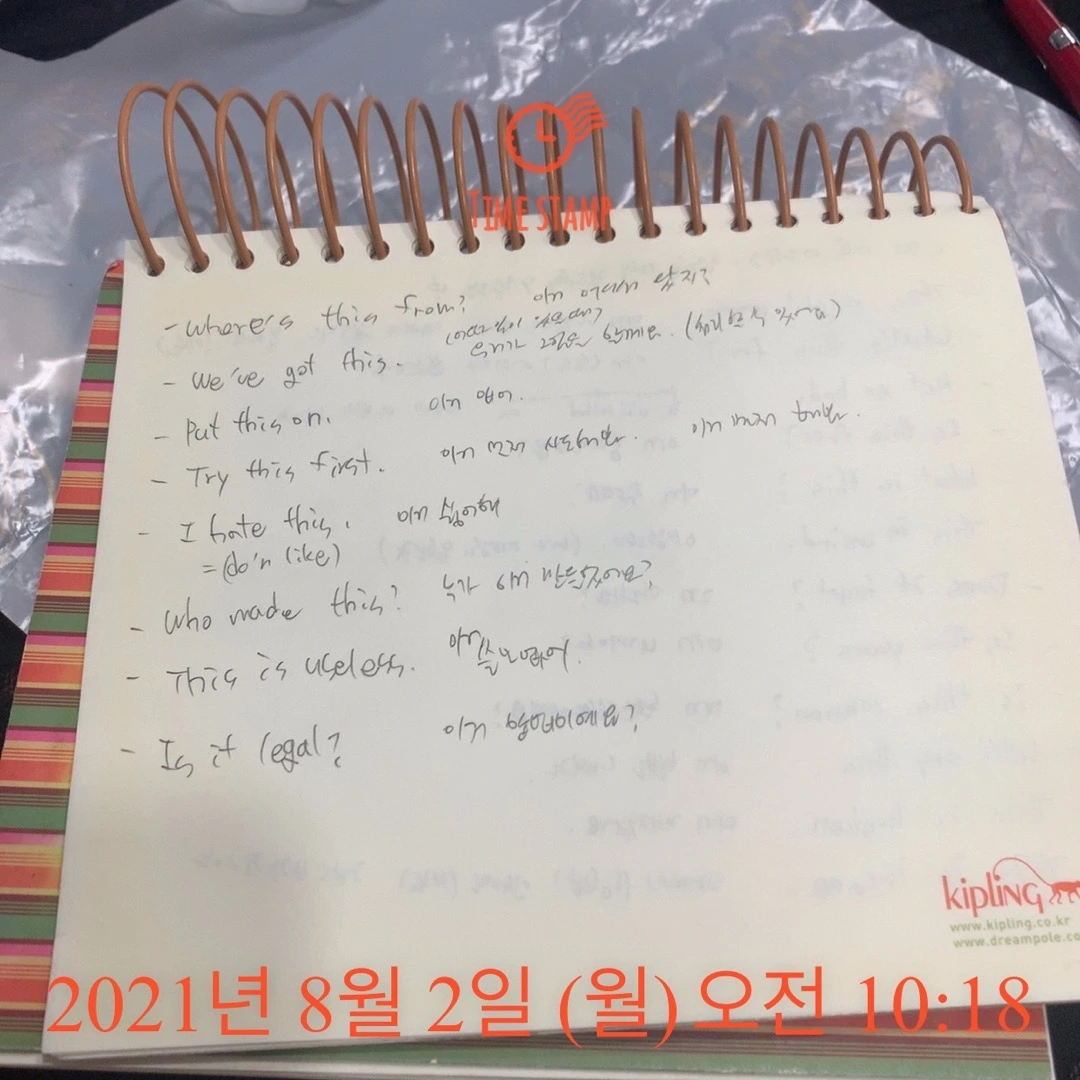 TIME STAMP
- Where's this from? 이거 어디서 났지?
(어려움이 있을때)
- We've got this. 우리가 할게요. (처리할 수 있어요)
- Put this on. 이거 입어.
- Try this first. 이거 먼저 시도해봐. 이거 먼저 해봐.
- I hate this. 이거 싫어해
= (do'n like)
- Who made this? 누가 이거 만들었어요?
- This is useless. 이거 쓸모없어.
- Is it legal? 이거 합법이에요?
kipling
www.kipling.co.kr
www.dreampole.co
2021년 8월 2일 (월) 오전 10:18